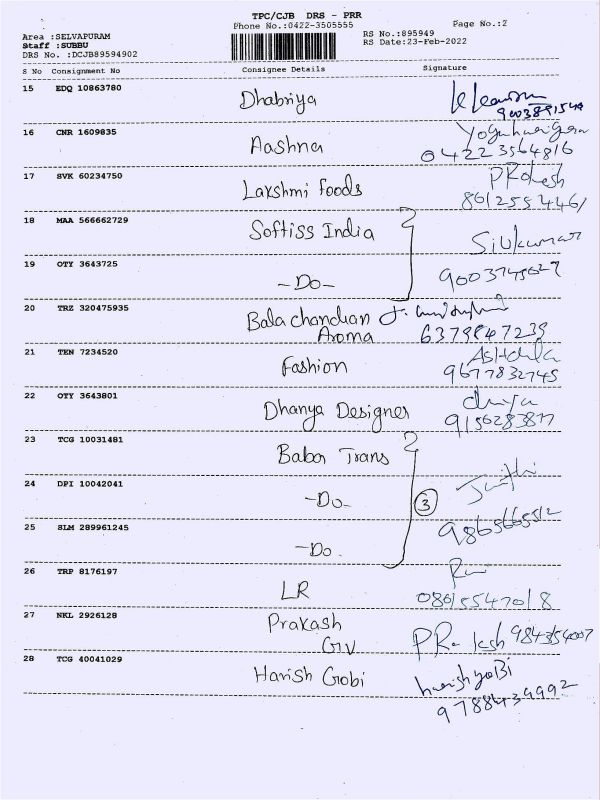 TPC/CJB DRS - PRR
Phone No.:0422-3505555
Page No.:2
Area :SELVAPURAM
RS No.:895949
Staff :SUBBU
RS Date:23-Feb-2022
DRS No. :DCJB89594902
S No Consignment No Consignee Details Signature
15 EDQ 10863780 Dhabriya
16 CNR 1609835 Aashna
04223564816
17 SVK 60234750 Lakshmi foods
18 MAA 566662729 Softiss India Sivkumar
19 OTY 3643725 -Do-
20 TRZ 320475935 Bala chandian
Aroma 6379847239
21 TEN 7234520 Fashion
9677832745
22 OTY 3643801 Dhanya Designer
9150283877
23 TCG 10031481 Babon Trans
24 DPI 10042041 -Do- 3
25 SLM 289961245 -Do. 9865665512
26 TRP 8176197 LR
08015547018
27 NKL 2926128 Prakash
GV
28 TCG 40041029 Harish Gobi harish gobi
9788439992